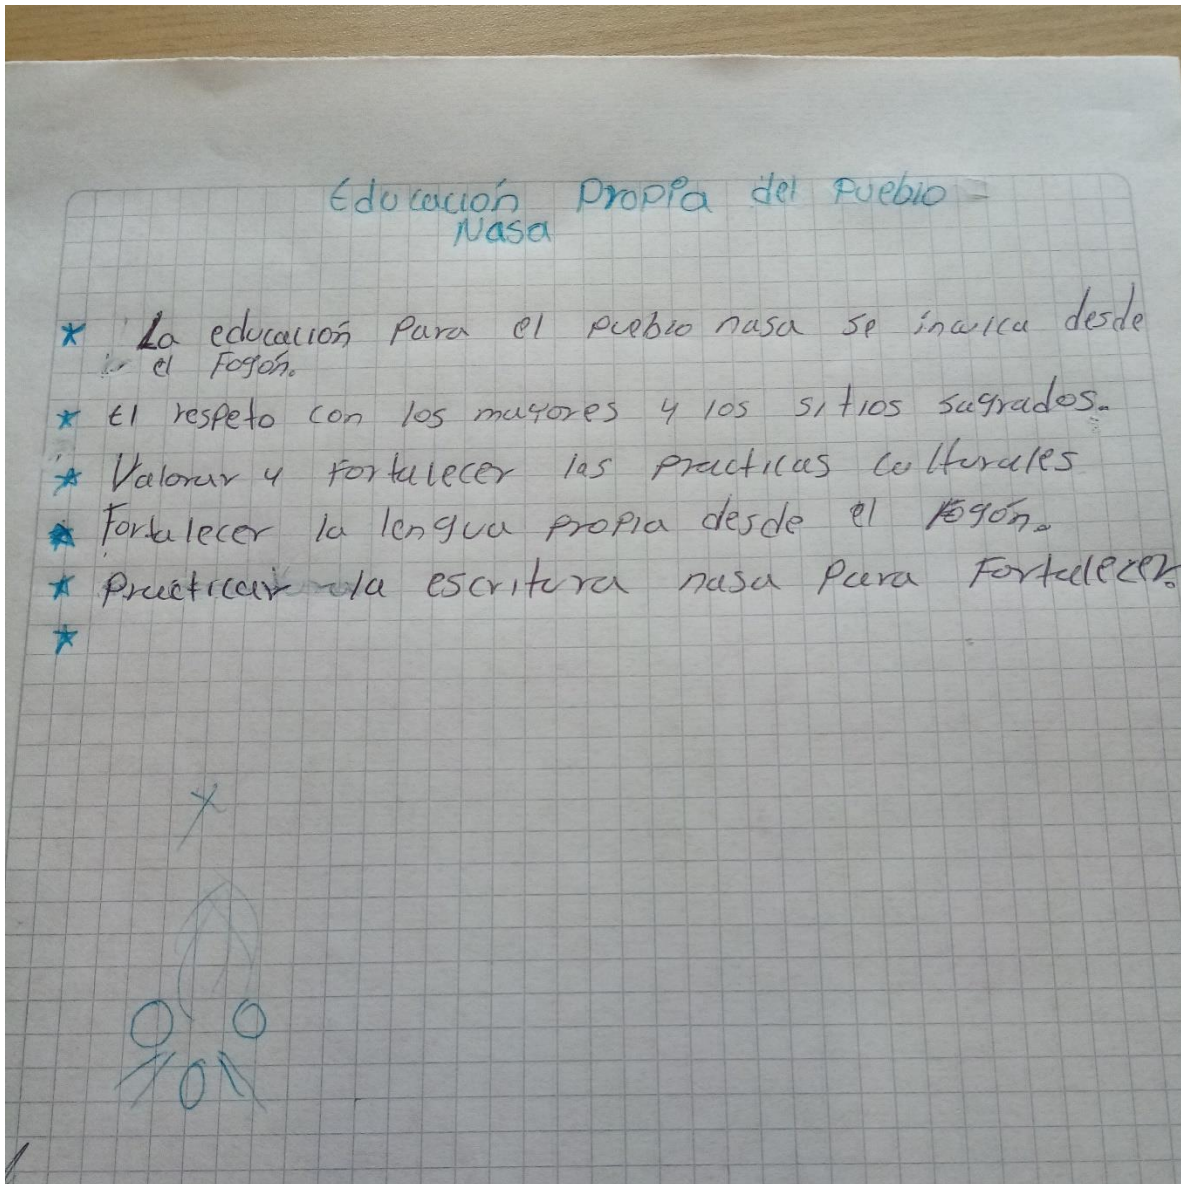 Educación Propia del Pueblo
Nasa
* La educación Para el pueblo nasa se inculca desde
el Fogón.
* El respeto con los mayores y los sitios sagrados.
* Valorar y Fortalecer las practicas culturales
* Fortalecer la lengua propia desde el Fogón.
* Practicar la escritura nasa Para Fortalecer.
*